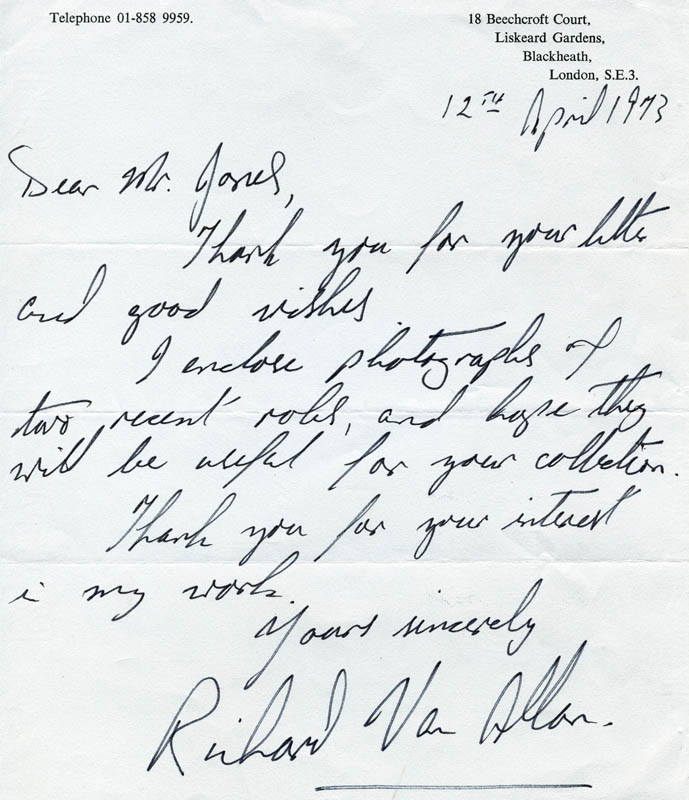 Telephone 01-858 9959.
18 Beechcroft Court,
Liskeard Gardens,
Blackheath,
London, S.E.3.
12TH April 1973
Dear Mr. Jones,
Thank you for your letter
and good wishes.
I enclose photographs of
two recent roles, and hope they
will be useful for your collection.
Thank you for your interest
in my work.
Yours sincerely
Richard Van Allan.